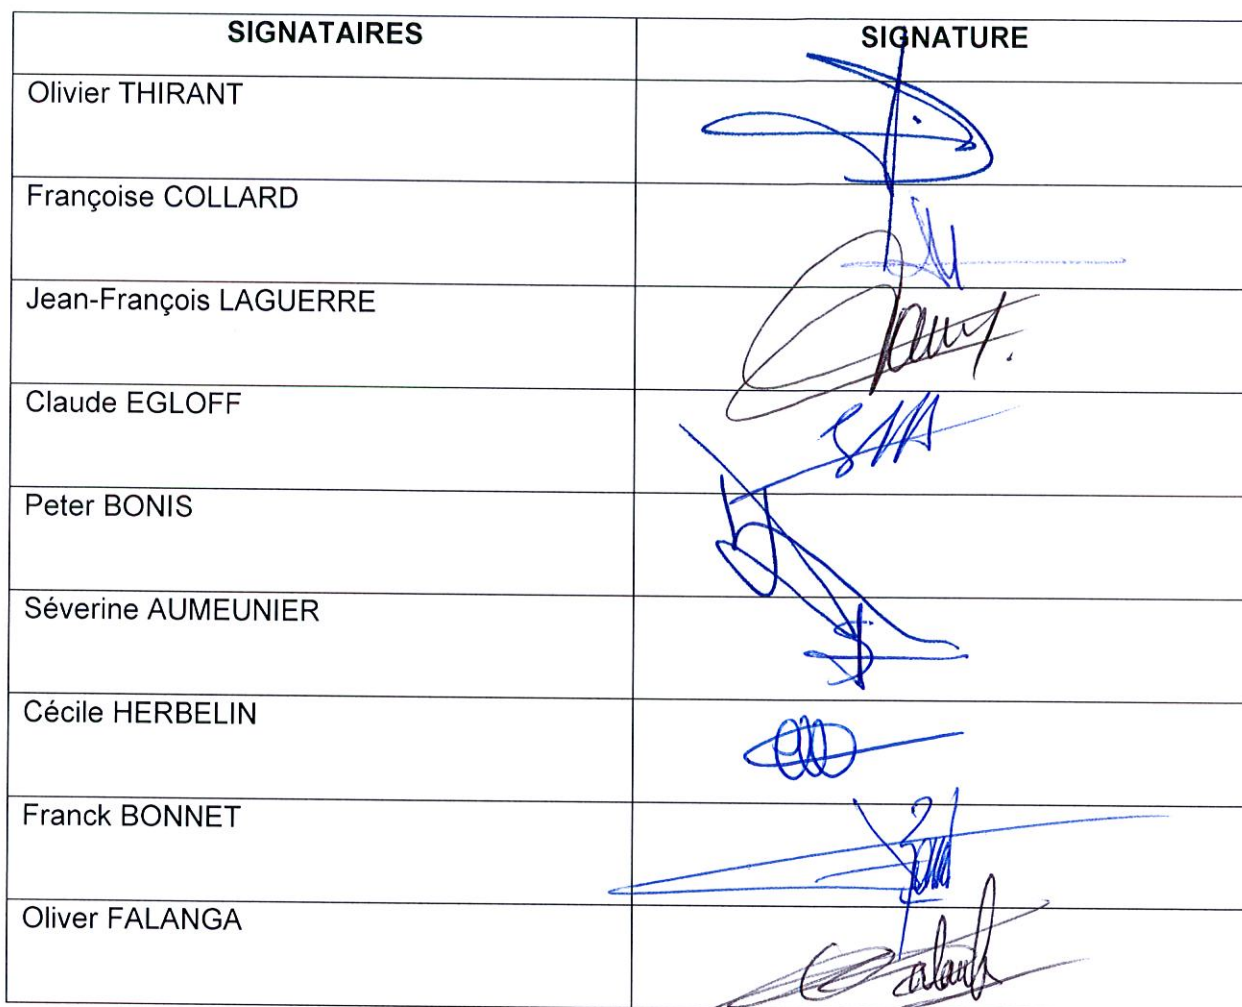 SIGNATAIRES SIGNATURE
Olivier THIRANT
Françoise COLLARD
Jean-François LAGUERRE
Claude EGLOFF
Peter BONIS
Séverine AUMEUNIER
Cécile HERBELIN
Franck BONNET
Oliver FALANGA